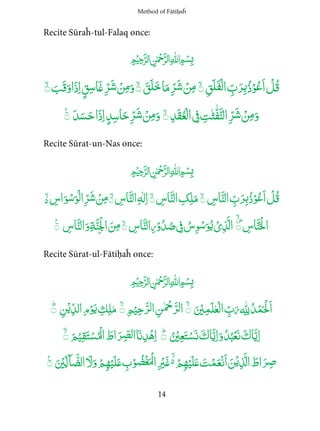 Method of Fātiḥaĥ
Recite Sūraĥ-tul-Falaq once:
بِسْمِ اللهِ الرَّحْمٰنِ الرَّحِيْمِ
قُلْ اَعُوْذُ بِرَبِّ الْفَلَقِۙ مِنْ شَرِّ مَا خَلَقَۙ وَمِنْ شَرِّ غَاسِقٍ اِذَا وَقَبَۙ
وَمِنْ شَرِّ النَّفّٰثٰتِ فِی الْعُقَدِۙ وَمِنْ شَرِّ حَاسِدٍ اِذَا حَسَدَ۠
Recite Sūrat-un-Nas once:
بِسْمِ اللهِ الرَّحْمٰنِ الرَّحِيْمِ
قُلْ اَعُوْذُ بِرَبِّ النَّاسِۙ مَلِكِ النَّاسِۙ اِلٰهِ النَّاسِۙ مِنْ شَرِّ الْوَسْوَاسِ۬ۙ
الْخَنَّاسِ۪ۙ الَّذِیْ يُوَسْوِسُ فِیْ صُدُوْرِ النَّاسِۙ مِنَ الْجِنَّةِ وَالنَّاسِ۠
Recite Sūrat-ul-Fātiḥaĥ once:
بِسْمِ اللهِ الرَّحْمٰنِ الرَّحِيْمِ
اَلْحَمْدُ لِلّٰهِ رَبِّ الْعٰلَمِيْنَۙ الرَّحْمٰنِ الرَّحِيْمِۙ مٰلِكِ يَوْمِ الدِّيْنِؕ
اِيَّاكَ نَعْبُدُ وَاِيَّاكَ نَسْتَعِيْنُؕ اِهْدِنَا الصِّرَاطَ الْمُسْتَقِيْمَۙ
صِرَاطَ الَّذِيْنَ اَنْعَمْتَ عَلَيْهِمْ۬ۙ غَيْرِ الْمَغْضُوْبِ عَلَيْهِمْ وَلَا الضَّآلِّيْنَ۠
14